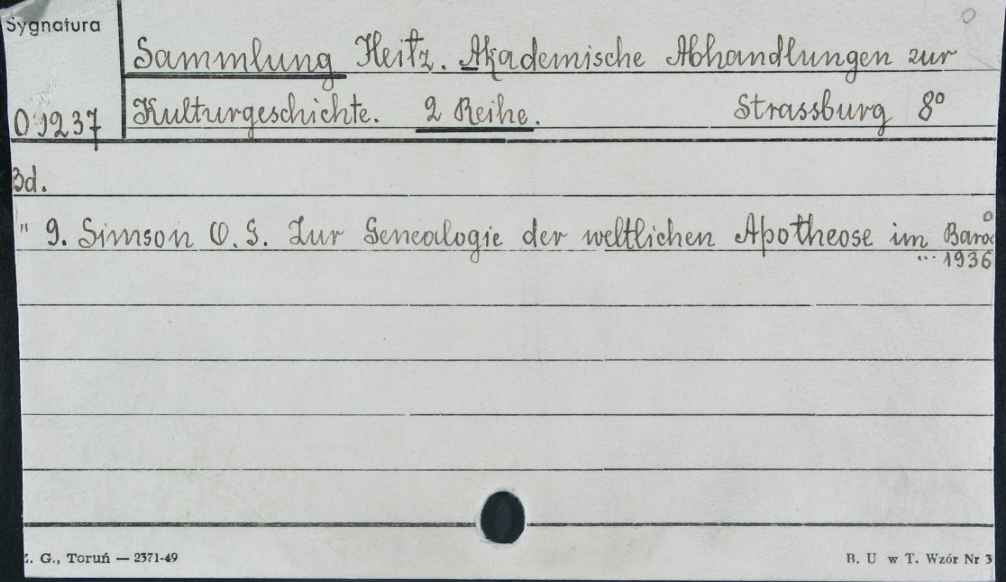 Sygnatura
Sammlung Heitz. Akademische Abhandlungen zur
01237 Kulturgeschichte. 2 Reihe. Strassburg 8°
Bd.
" 9. Simson O. G. Zur Genealogie der weltlichen Apotheose im Baroc
... 1936
Z. G., Toruń — 2371-49 B. U w T. Wzór Nr 3